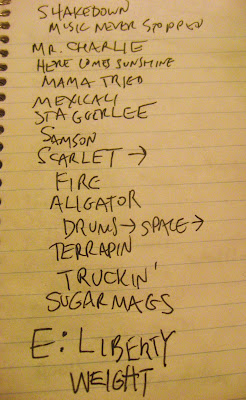 SHAKEDOWN
MUSIC NEVER STOPPED
MR. CHARLIE
HERE COMES SUNSHINE
MAMA TRIED
MEXICALI
STAGGERLEE
SAMSON
SCARLET →
FIRE
ALIGATOR
DRUMS → SPACE →
TERRAPIN
TRUCKIN'
SUGAR MAGS
E: LIBERTY
WEIGHT